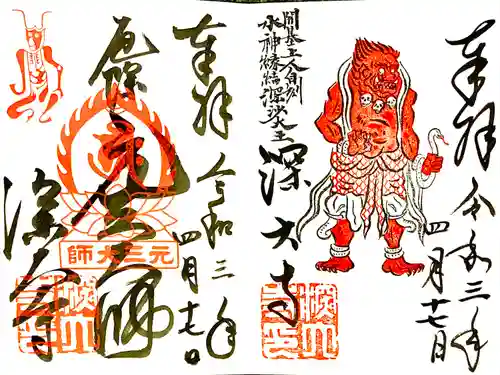 奉拝 令和三年
四月十七日
開基上人自刻
水神縁結深沙大王
深大寺
奉拝 令和三年
四月十七日
元三大師
元三大師
深大寺